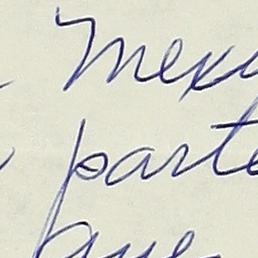 Mexi
parte
que